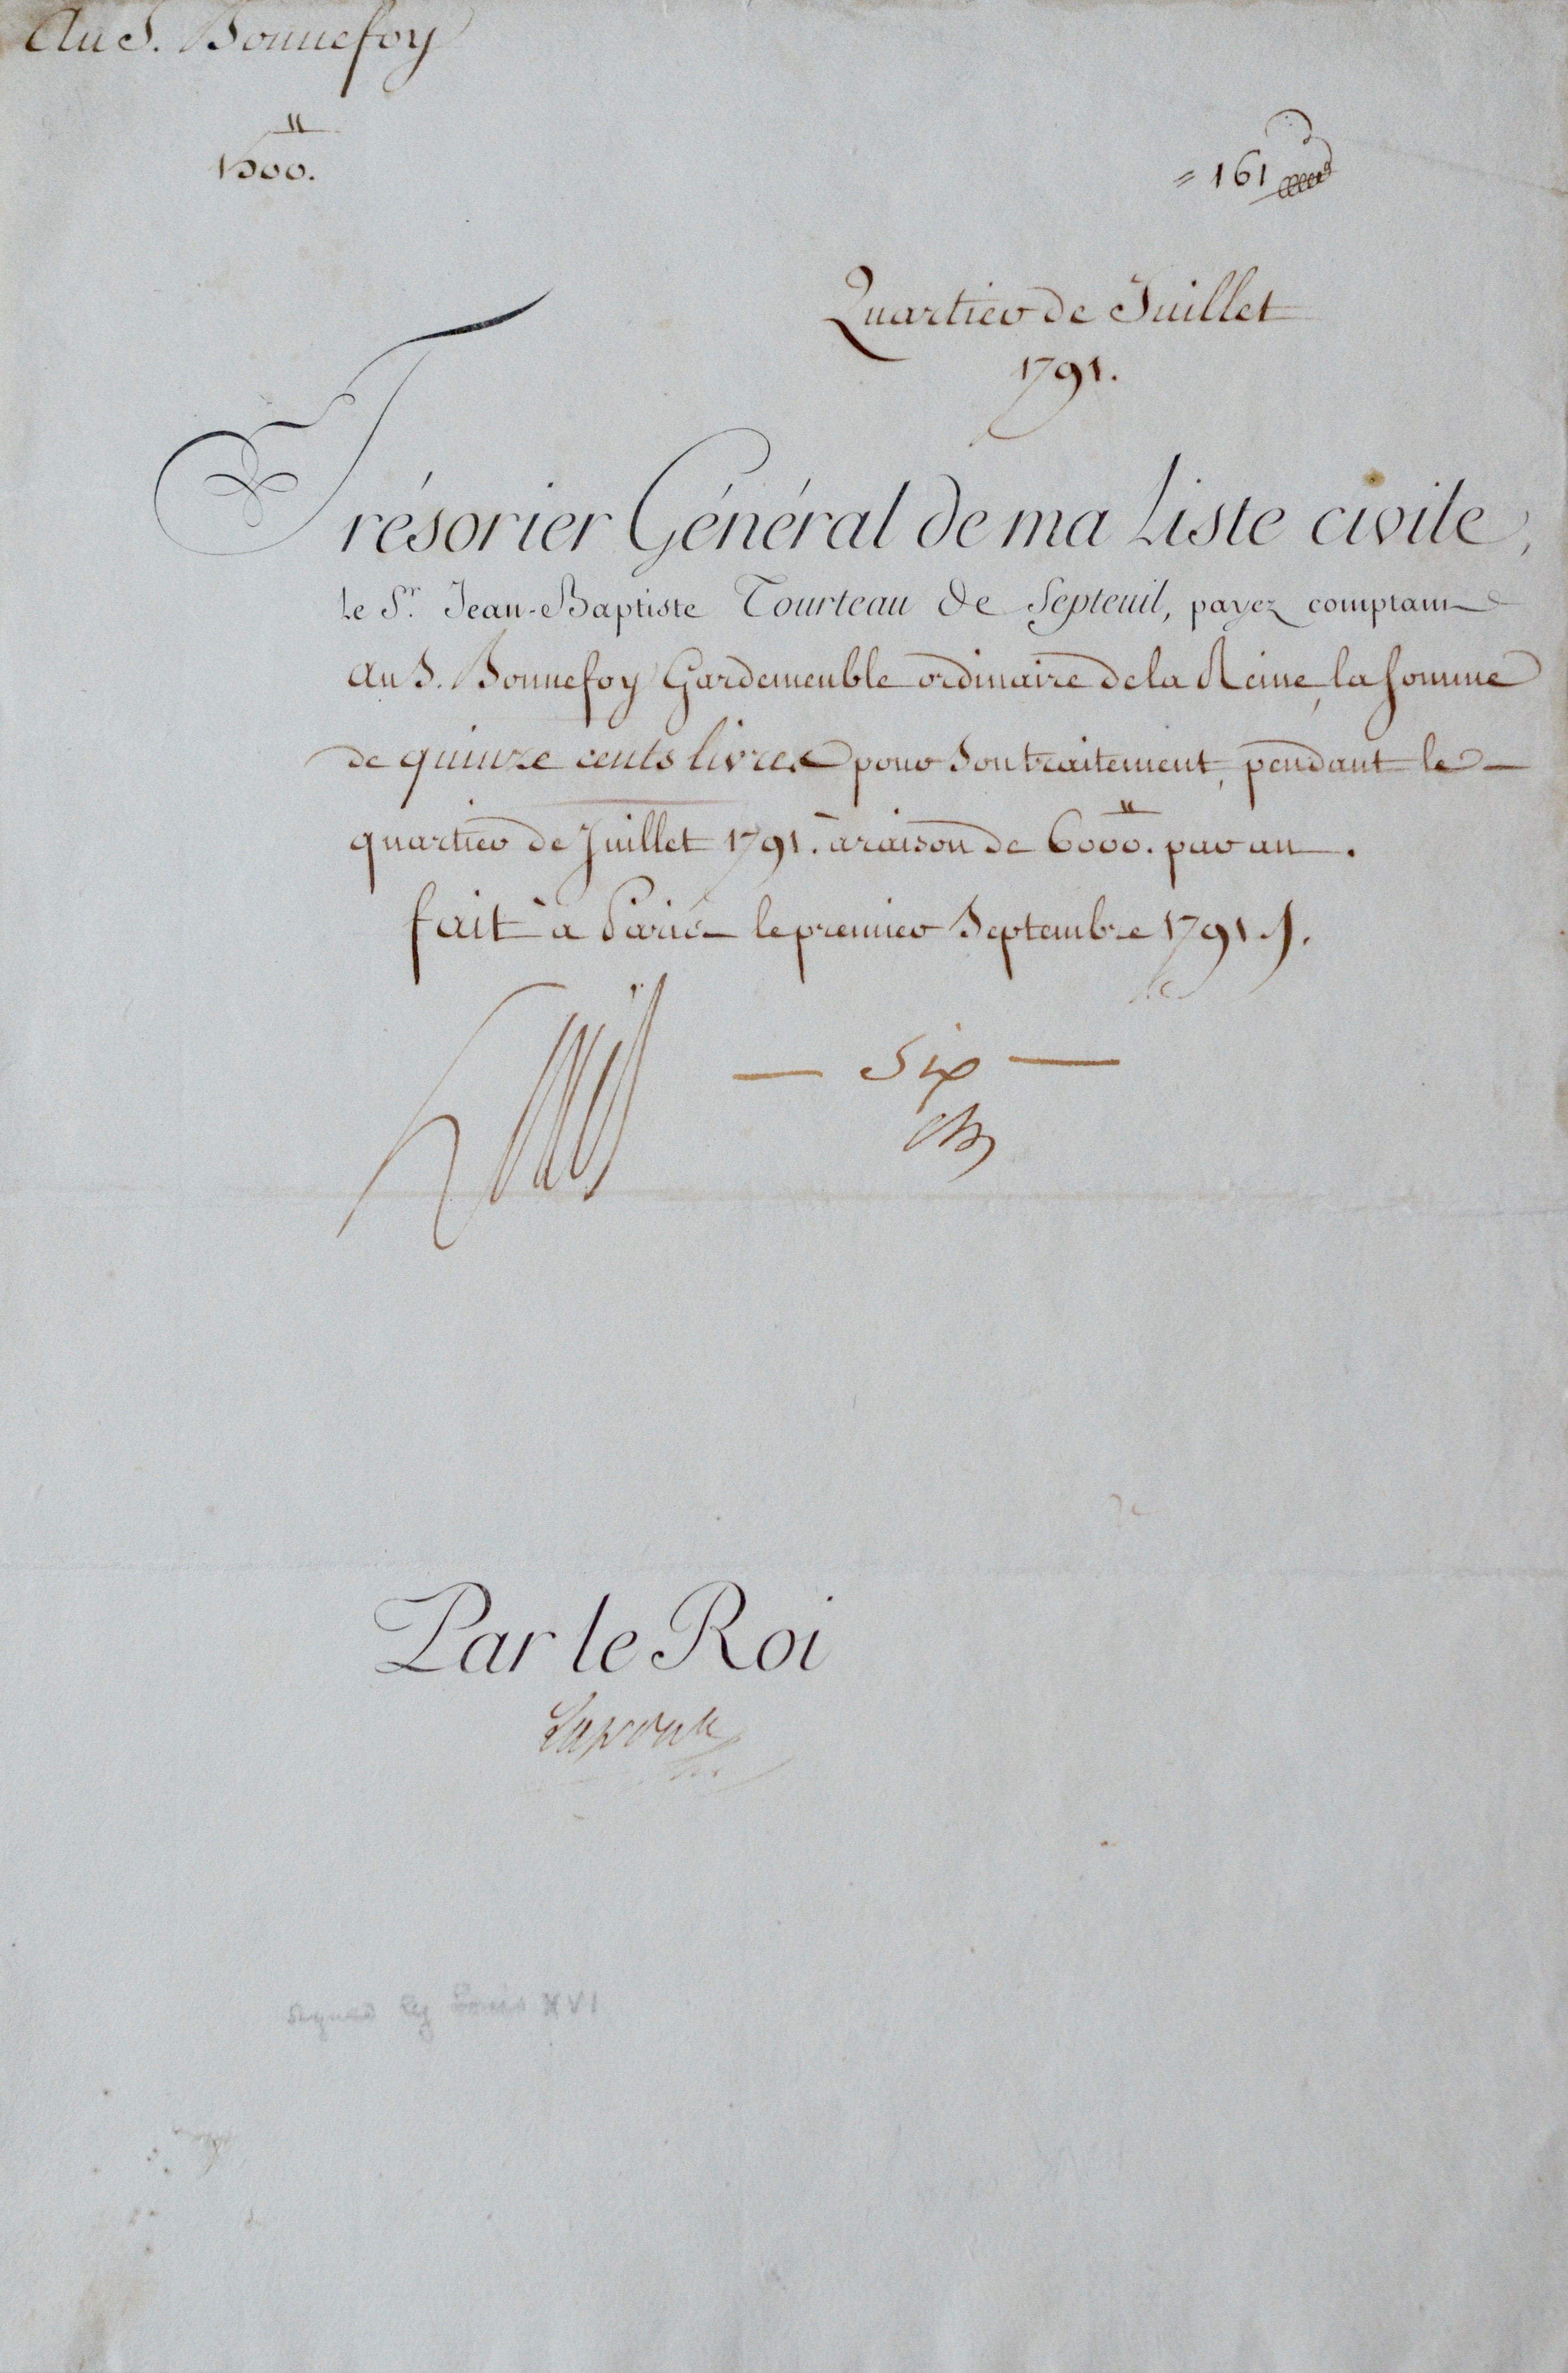 Au S. Bonnefoy
1500.
= 161
Quartier de Juillet
1791.
Trésorier Général de ma Liste civile,
le Sr. Jean-Baptiste Tourteau de Septeuil, payez comptant
Au S. Bonnefoy Gardemeuble ordinaire de la Reine, la somme
de quinze cents livres pour son traitement, pendant le
quartier de Juillet 1791. à raison de 6000. par an.
fait à Paris le premier Septembre 1791.
Louis
— Six —
Par le Roi
Laporte
Signed by Louis XVI